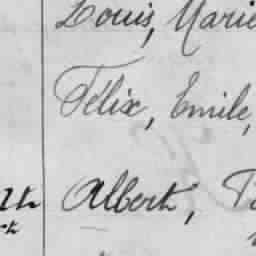 Louis, Marie
Félix, Emile,
Albert,